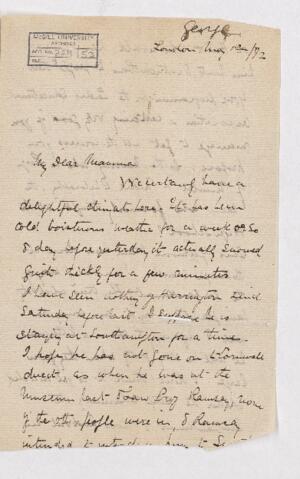 George
McGILL UNIVERSITY
ARCHIVES
ACC. NO.
REF.
London May 1st/92
My Dear Mamma
We certainly have a
delightful climate here. It has been
cold boisterous weather for a week or so
& day before yesterday it actually snowed
quite thickly for a few minutes
I have seen nothing of Harrington since
Saturday before last. I suppose he is
staying at Southampton for a time.
I hope he has not gone on to Cornwall
direct, as when he was at the
Museum last I saw Prof Ramsay, none
of the other people were in, & Ramsay
intended to introduce him to